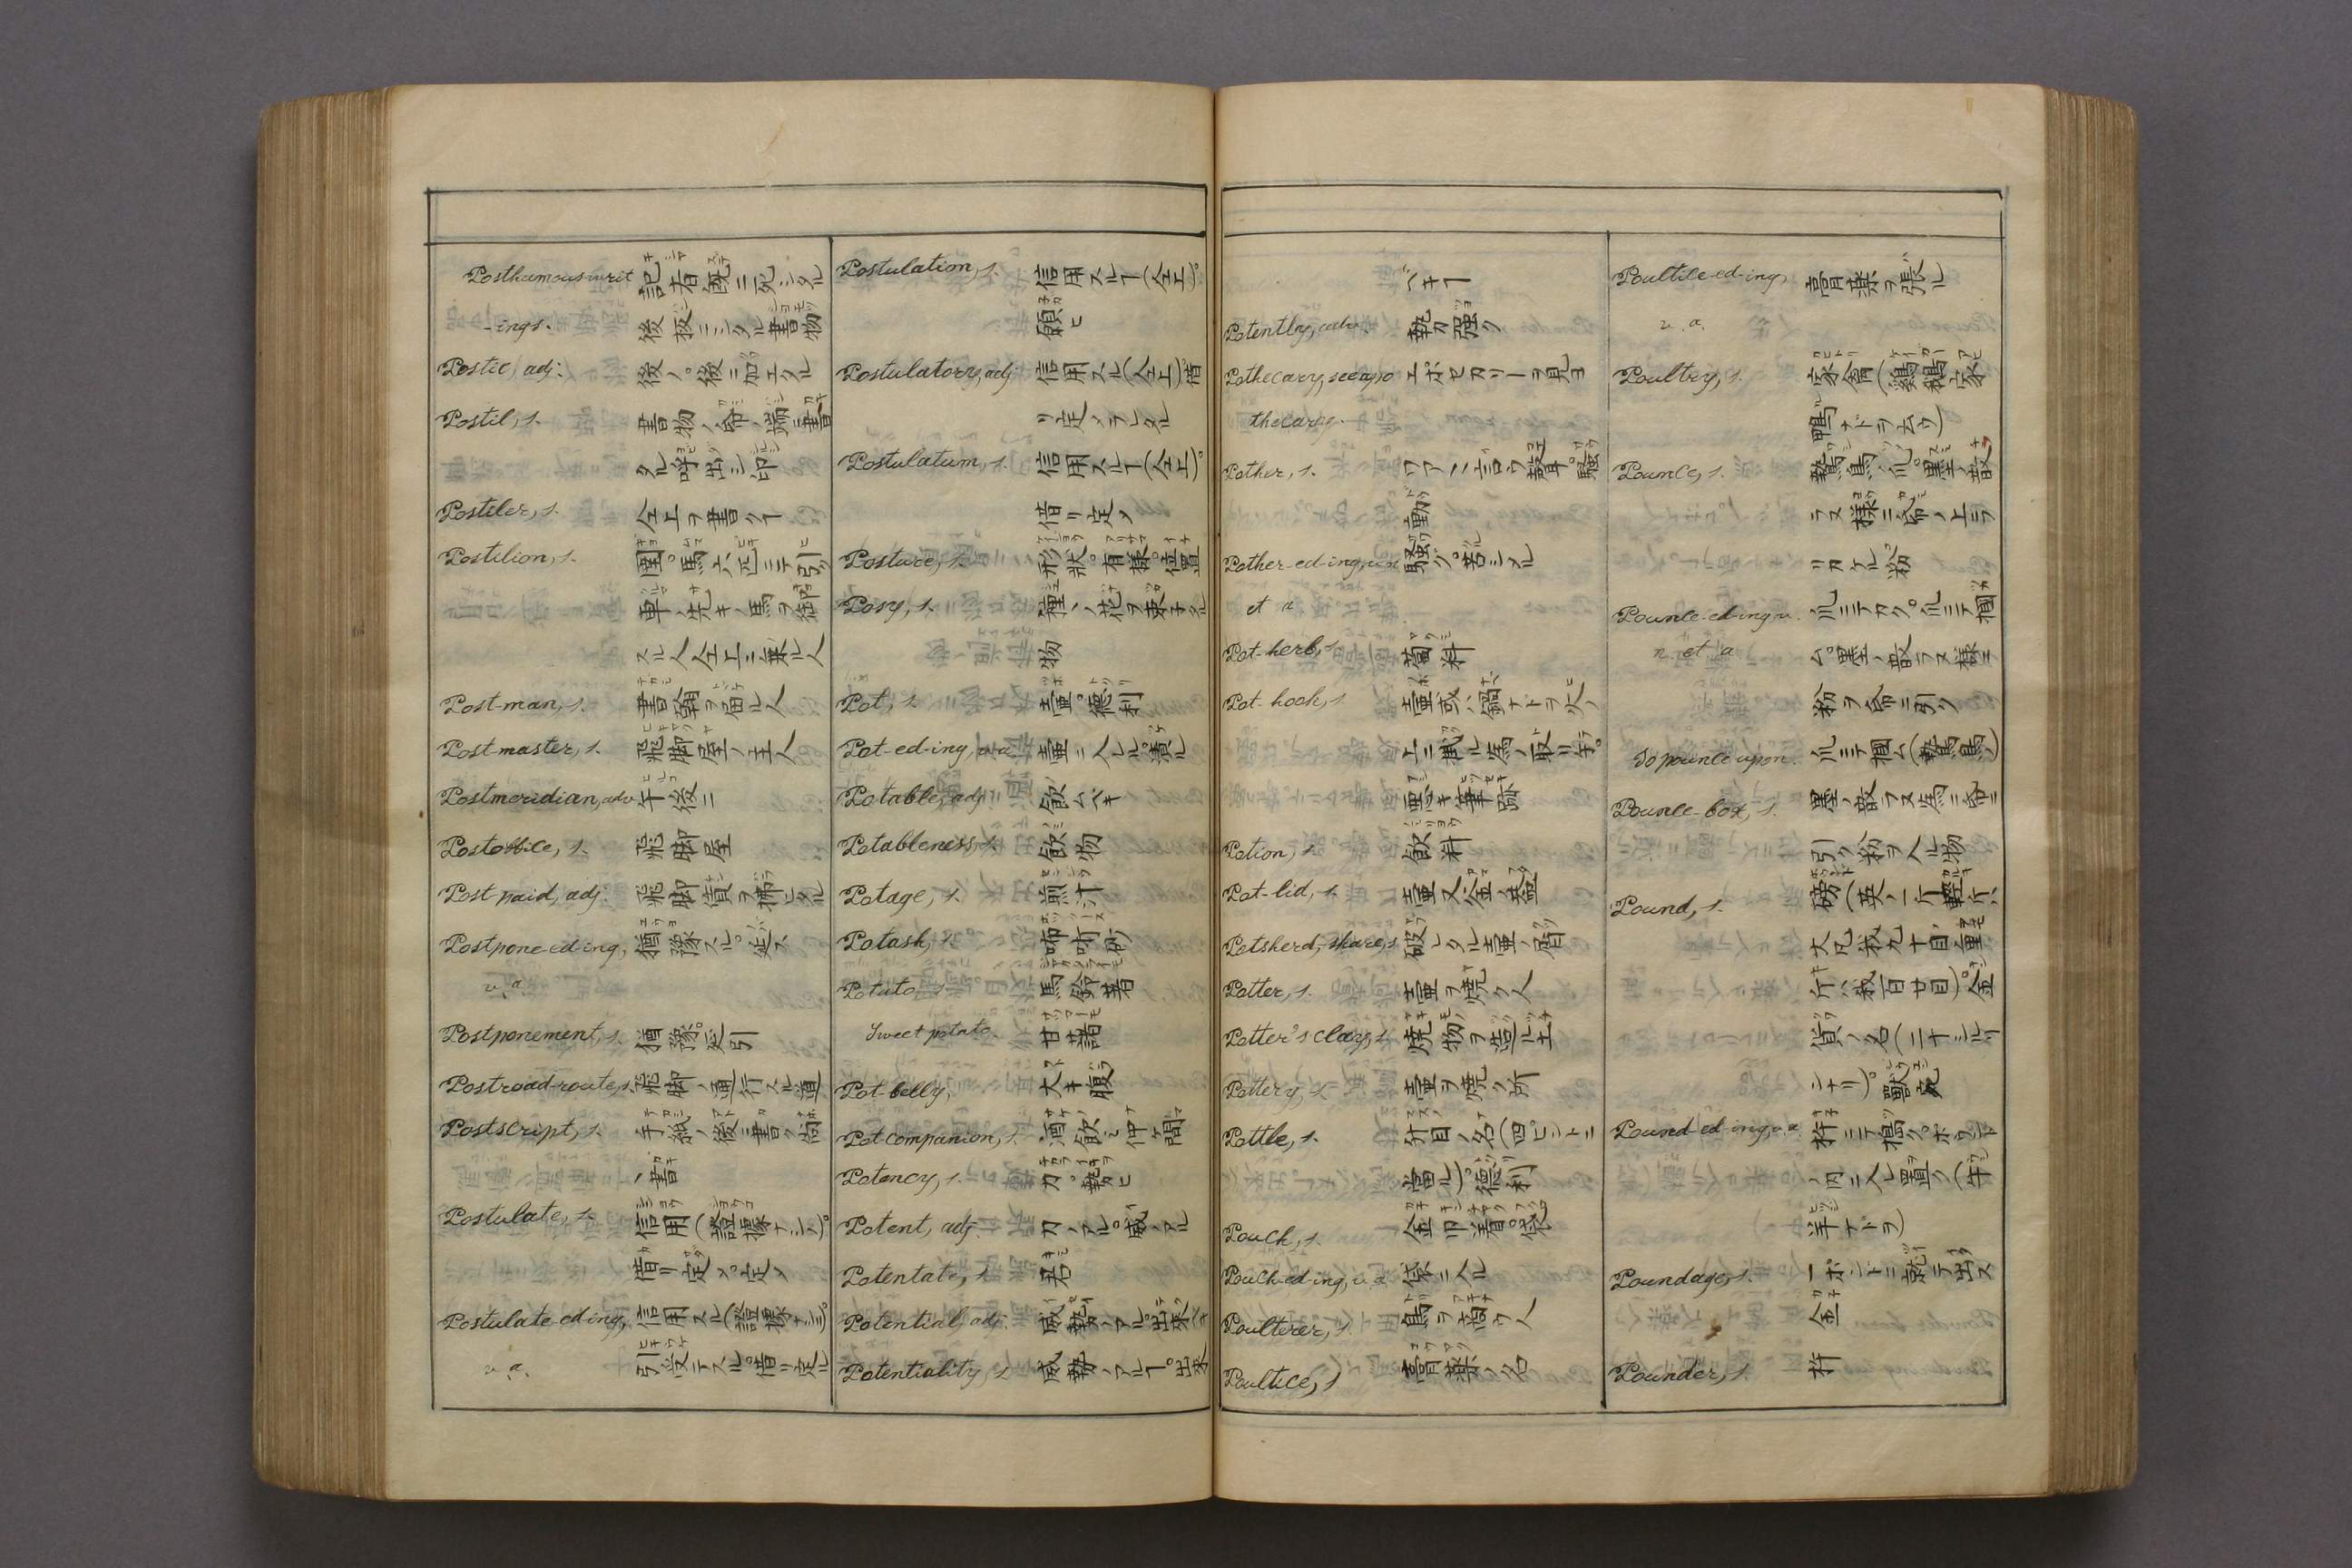 Posthumous-writ 記者既ニ死シタル
-ings. 後板ニシタル書物
Postic, adj: 後ノ。後ニ加エタル
Postil, s. 書物ノ命ノ端ニ書
タル呼出シ印
Postiler, s. 仝上ヲ書ク
Postilion, s. 圉。馬上 匹ニテ引ク
車ノ先キノ馬ヲ御
スル人仝上ニ乗ル人
Post-man, s. 書翰ヲ届ル人
Post-master, s. 飛脚屋ノ主人
Postmeridian, adv 午後ニ
Postoffice, s. 飛脚屋
Post paid, adj. 飛脚賃ヲ拂ヒタル
Postpone-ed-ing, 猶豫スル。延ス
v. a.
Postponement, s. 猶豫。延引
Postroad-route, s. 飛脚ノ通行スル道
Postscript, s. 手紙ノ後ニ書ク尚
、書
Postulate, s. 信用(證據ナシノ)。
借リ定メ。定メ
Postulate-ed-ing, 信用スル(證據ナシニ)。
v. a. 引受テスル。借リ定ル
Postulation, s. 信用スルヿ(仝上)。
願ヒ
Postulatory, adj 信用スル(仝上)借
リ定メラレタル
Postulatum, s. 信用スルヿ(仝上)。
借リ定メ
Posture, s. 形状。有様。位置
Posy, s. 種々ノ花ヲ束子タル
物
Pot, s. 壷。徳利
Pot-ed-ing, v. a 壷ニ入レル。漬ル
Potable, adj. 飲ムベキ
Potableness, s. 飲物
Potage, s. 煎汁
Potash, s.
Potato, s. 馬鈴薯
Sweet potato. 甘藷
Pot-belly, 大キ腹
Pot companion, s. 酒飲ミ仲ケ間
Potency, s. 力。勢ヒ
Potent, adj. 力ノアル。威ノアル
Potentate, s. 君
Potential, adj. 威勢ノアル。出来ベキ
Potentiality, s. 威勢ノアルヿ。出来
ベキヿ
Potently, adv. 勢力強ク
Pothecary, see apo エポセカリーヲ見ヨ
thecary.
Pother, s. ワアーニ言ウ聲。騒
動
Pother-ed-ing, v. n 騒グ。苦シメル
et a
Pot-herb, s. 葡料
Pot-hook, s 壷或ハ鍋ナドヲ火ノ
上ニ掛ル為ノ取リ手。
悪キ筆跡
Potion, s. 飲料
Pot-lid, s. 壷又釜ノ蓋
Potsherd,-share, s. 破レタル壷ノ屑
Potter, s. 壷ヲ焼ク人
Potter's clay, s. 焼物ヲ造ル土
Pottery, s. 壷ヲ焼ク所
Pottle, s. 升目ノ名(四ピントニ
當ル)。徳利
Pouch, s. 金巾着。袋
Pouch-ed-ing, v. a 袋ニ入ル
Poulterer, s. 鳥ヲ商ウ人
Poultice, s 膏薬ノ名
Poultice-ed-ing, 膏薬ヲ張ル
v. a.
Poultry, s. 家禽(鶏鵝家
鴨ナドヲ云ウ)
Pounce, s. 鷙鳥ノ爪。墨ノ散
ラヌ様ニ命ノ上ヲ
リカケル粉
Pounce-ed-ing, v. 爪ニテカク。爪ニテ摑
n. et a ム。墨ノ散ラヌ様ニ
粉ヲ命ニ引ク
To pounce upon. 爪ニテ摑ム(鷙鳥ノ)
Pounce-box, s. 墨ノ散ラヌ為ニ命ニ
引ク粉ヲ入ル物
Pound, s. 磅(英ノ一斤輕斤ハ
大凡我九十目。重
斤ハ我百廿目)。金
貨ノ名(二十シルリ
シナリ)。獸
Pound-ed-ing, v. a. 杵ニテ搗ク。ポウンド
ノ内ニ入レ置ク(牛
羊ナドヲ)
Poundage, s. 一ポンドニ就テ出ス
金
Pounder, s. 杵